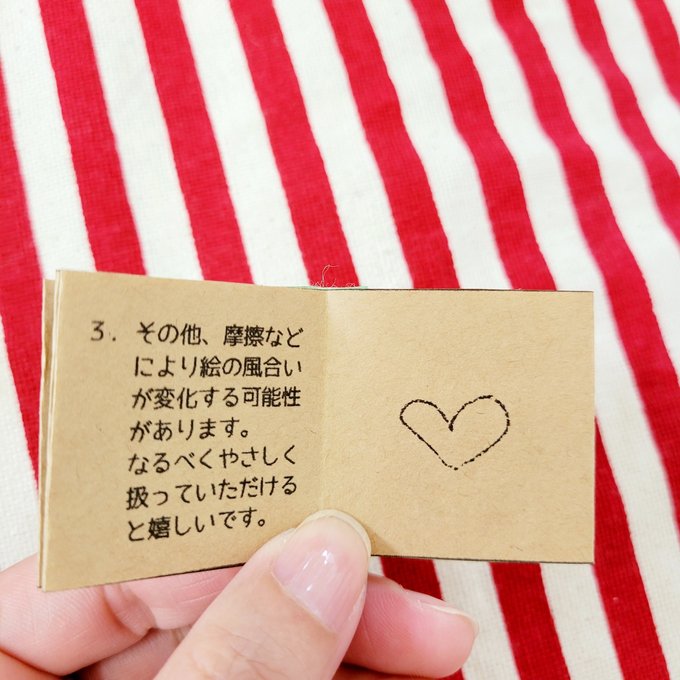 3. その他、摩擦など
により絵の風合い
が変化する可能性
があります。
なるべくやさしく
扱っていただける
と嬉しいです。